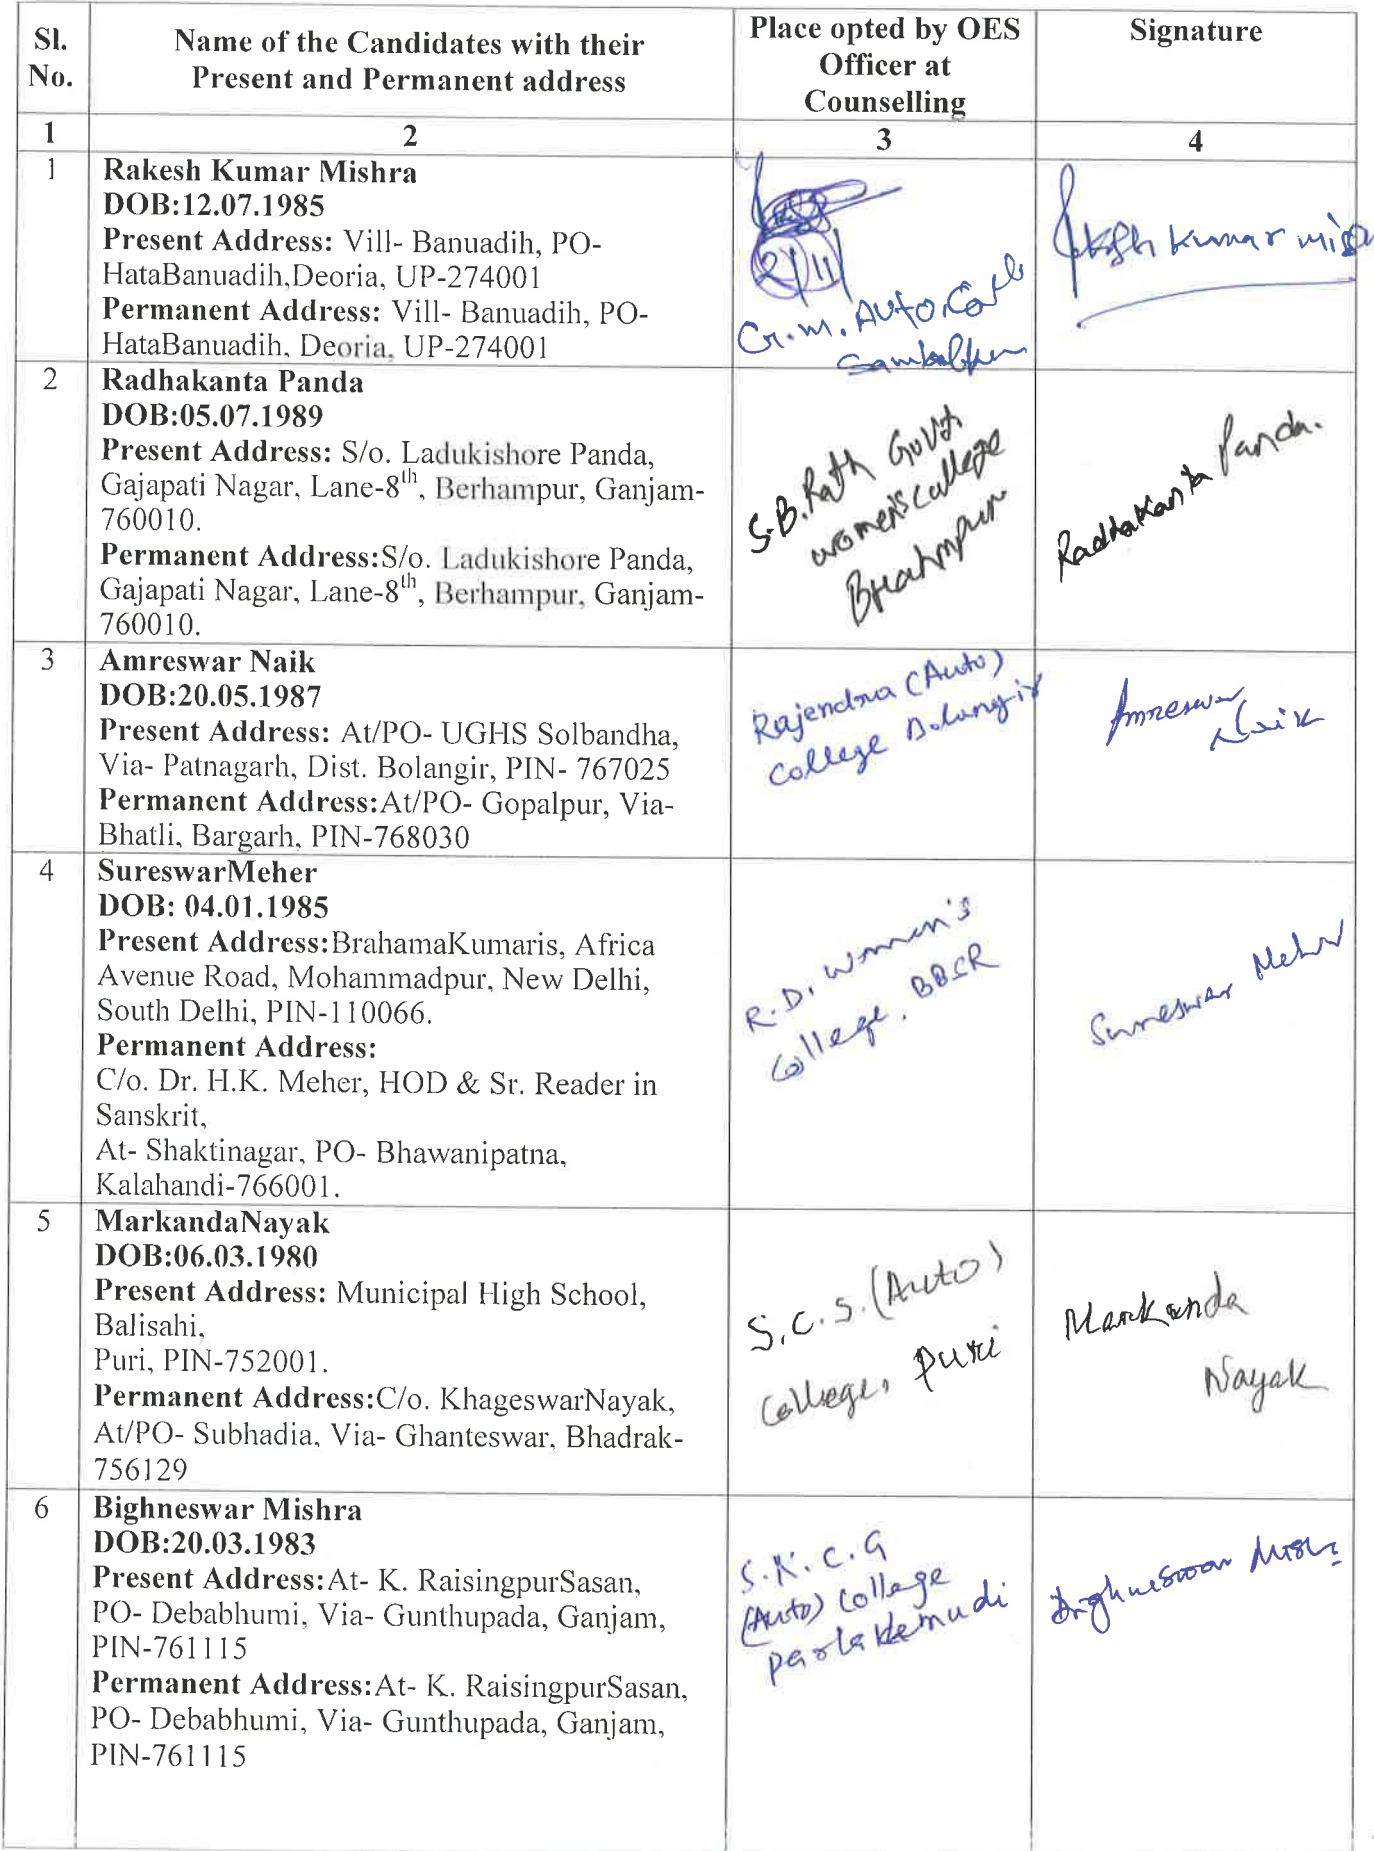 Sl. No.
Name of the Candidates with their
Present and Permanent address
Place opted by OES
Officer at
Counselling
Signature
1
2
3
4
1
Rakesh Kumar Mishra
DOB:12.07.1985
Present Address: Vill- Banuadih, PO-
HataBanuadih,Deoria, UP-274001
Permanent Address: Vill- Banuadih, PO-
HataBanuadih, Deoria, UP-274001
2/11
G.M. Auto. Coll
Sambalpur
kumar
2
Radhakanta Panda
DOB:05.07.1989
Present Address: S/o. Ladukishore Panda,
Gajapati Nagar, Lane-8th, Berhampur, Ganjam-
760010.
Permanent Address:S/o. Ladukishore Panda,
Gajapati Nagar, Lane-8th, Berhampur, Ganjam-
760010.
S.B. Rath Govt.
women's college
Radhakanta Panda.
3
Amreswar Naik
DOB:20.05.1987
Present Address: At/PO- UGHS Solbandha,
Via- Patnagarh, Dist. Bolangir, PIN- 767025
Permanent Address:At/PO- Gopalpur, Via-
Bhatli, Bargarh, PIN-768030
Rajendra (Auto)
College Bolangir
Amreswar
Naik
4
SureswarMeher
DOB: 04.01.1985
Present Address:BrahamaKumaris, Africa
Avenue Road, Mohammadpur, New Delhi,
South Delhi, PIN-110066.
Permanent Address:
C/o. Dr. H.K. Meher, HOD & Sr. Reader in
Sanskrit,
At- Shaktinagar, PO- Bhawanipatna,
Kalahandi-766001.
R.D. Women's
College, BBSR
Sureswar Meher
5
MarkandaNayak
DOB:06.03.1980
Present Address: Municipal High School,
Balisahi,
Puri, PIN-752001.
Permanent Address:C/o. KhageswarNayak,
At/PO- Subhadia, Via- Ghanteswar, Bhadrak-
756129
S.C.S. (Auto)
College, Puri
Markanda
Nayak
6
Bighneswar Mishra
DOB:20.03.1983
Present Address:At- K. RaisingpurSasan,
PO- Debabhumi, Via- Gunthupada, Ganjam,
PIN-761115
Permanent Address:At- K. RaisingpurSasan,
PO- Debabhumi, Via- Gunthupada, Ganjam,
PIN-761115
S.K.C.G
(Auto) College
Parlakemudi
Bighneswar